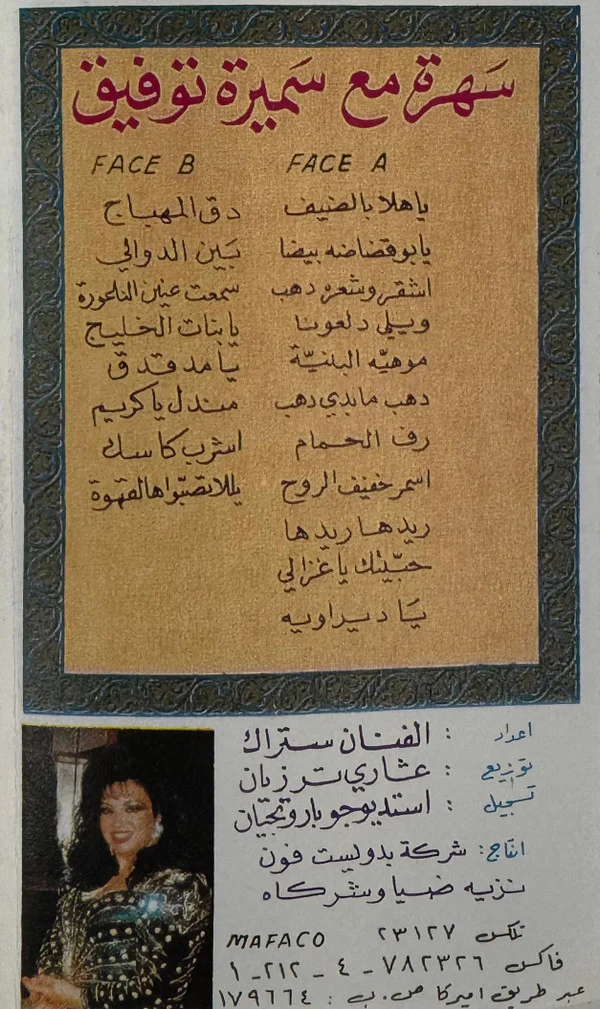 سَهرة مع سَميرة توفيق
FACE A
ياهلا بالضيف
يابو قضاضه بيضا
اشقر وشعره دهب
ويلي دلعونا
موهيّه البلنيّة
دهب مابدي دهب
رف الحمام
اسمر خفيف الروح
ريدها ريدها
حبّيتك يا غزالي
يَا ديراويه
FACE B
دق المهباج
بَين الدوالي
سمعت عنين الناعورة
يا بنات الخليج
يا مدقدق
مندل يا كريم
اشرب كاسك
يللا تصبّوا هالقهوة
اعداد : الفنان ستراك
توزيع : غازي ترزيان
تسجيل : استديو جو باروتجيان
انتاج : شركة بدويست فون
نزيه ضيا وشركاه
تلكس ٢٣١٢٧ MAFACO
فاكس ٧٨٢٣٢٦ - ٤ - ٢١٢ - ١
عبر طريق اميركا ص.ب : ١٧٩٦٦٤